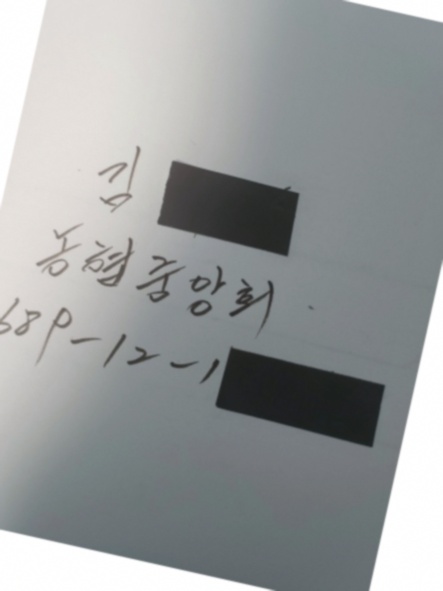 김
농협중앙회.
689-12-1